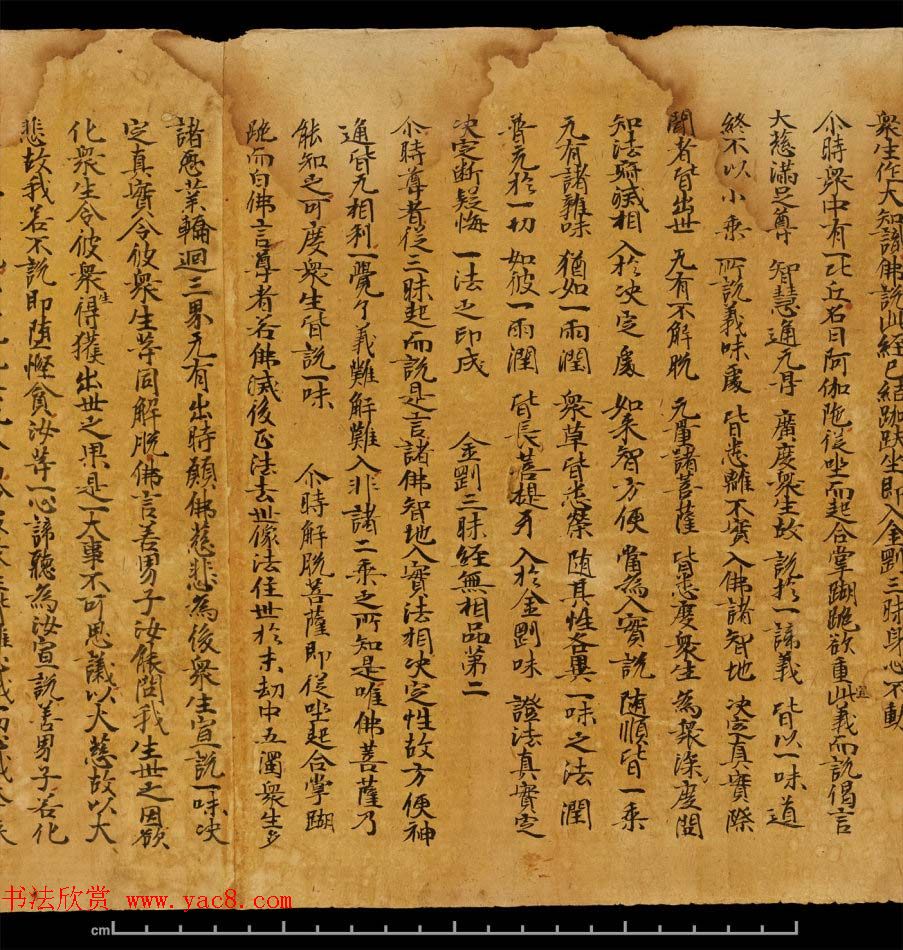 衆生作大知識佛說此經已結跏趺坐即入金剛三昧身心不動
尒時衆中有一比丘名曰阿伽陁從坐而起合掌䠒跪欲重宣此義而說偈言
大慈滿足尊 智慧通无导 廣度衆生故 說於一諦義 皆以一味道
終不以小乘 所說義味處 皆悉離不實 入佛諸智地 決定真實際
聞者皆出世 无有不解脫 无量諸菩薩 皆悉度衆生 為衆深廣問
知法寂滅相 入於決定處 如來智方便 當為入實說 随順皆一乘
无有諸雜味 猶如一雨潤 衆草皆悉榮 随其性各異 一味之法潤
普充於一切 如彼一雨潤 皆長菩提牙 入於金剛味 證法真實定
決定斷疑悔 一法之印成 金剛三昧經無相品第二
尒時尊者從三昧起而說是言諸佛智地入實法相決定性故方便神
通皆无相利一覺了義難解難入非諸二乘之所知見唯佛菩薩乃
能知之可度衆生皆說一味 尒時解脫菩薩即從坐起合掌䠒
跪而白佛言尊者若佛滅後正法去世像法住世於末劫中五濁衆生多
諸惡業輪迴三界无有出時願佛慈悲為後衆生宣說一味決
定真實令彼衆生等同解脫佛言善男子汝能問我出世之因欲
化衆生令彼衆生得獲出世之果是一大事不可思議以大慈故以大
悲故我若不說即堕慳貪汝等一心諦聽為汝宣說善男子若化
书法欣赏 www.yac8.com
cm